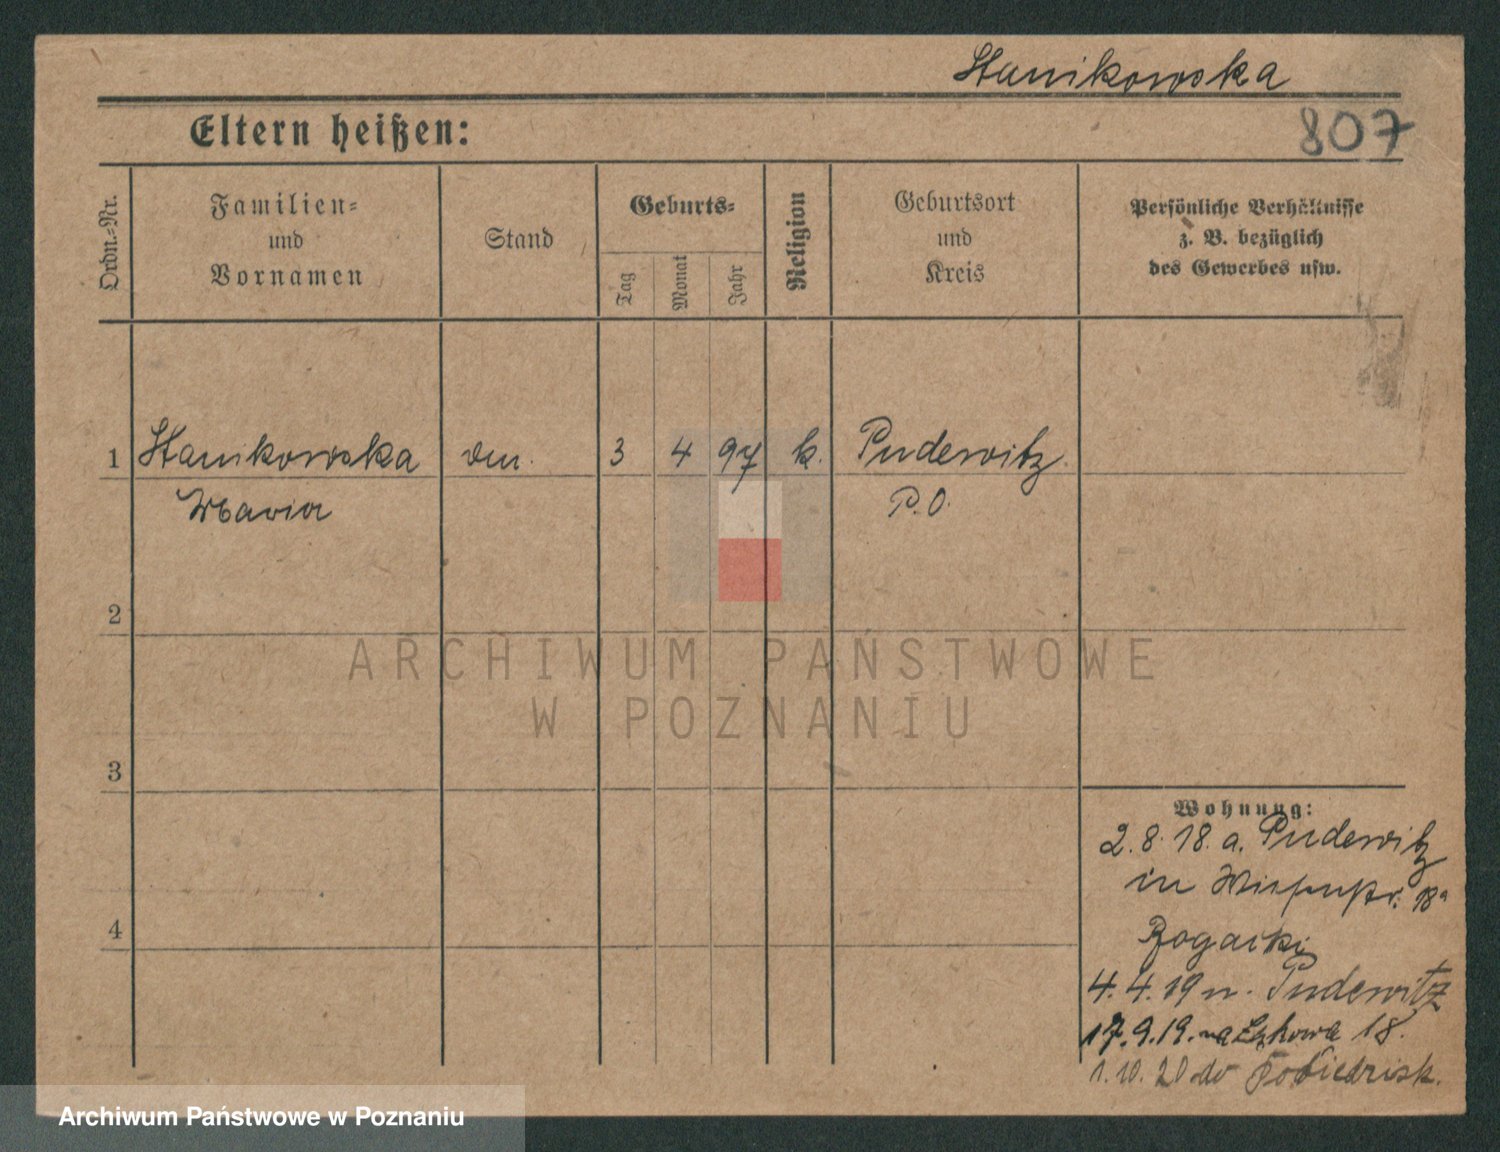 Stanikowska
Eltern heißen:
807
Ordn.-Nr.
Familien-
und
Vornamen
Stand
Geburts-
Tag
Monat
Jahr
Religion
Geburtsort
und
Kreis
Persönliche Verhältnisse
z. B. bezüglich
des Gewerbes usw.
1 Stanikowska 3 4 97 k. Pudewitz
Maria P.O.
2
3
4
Wohnung:
2.8.18. a. Pudewitz
in 18a
Rogacki
4.4.19 n. Pudewitz
17.9.19. na Łąkowa 18.
1.10.20 do Pobiedzisk.
ARCHIWUM PAŃSTWOWE
W POZNANIU
Archiwum Państwowe w Poznaniu